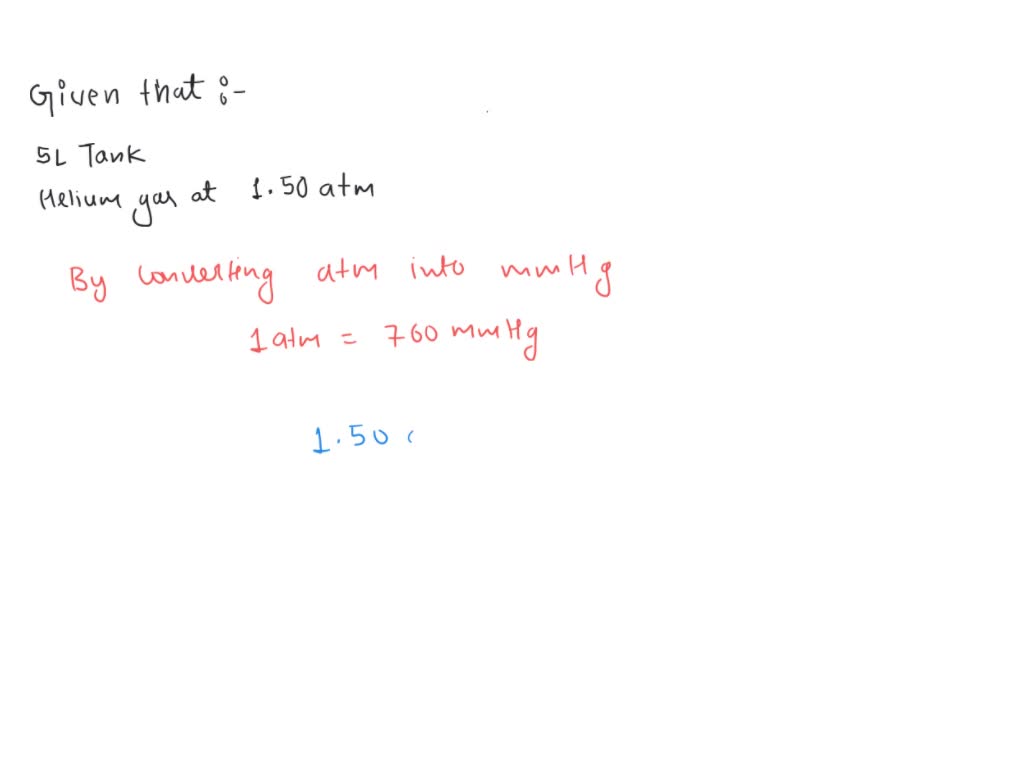 Given that :-
5L Tank
Helium gas at 1.50 atm
By converting atm into mmHg
1 atm = 760 mmHg
1.50